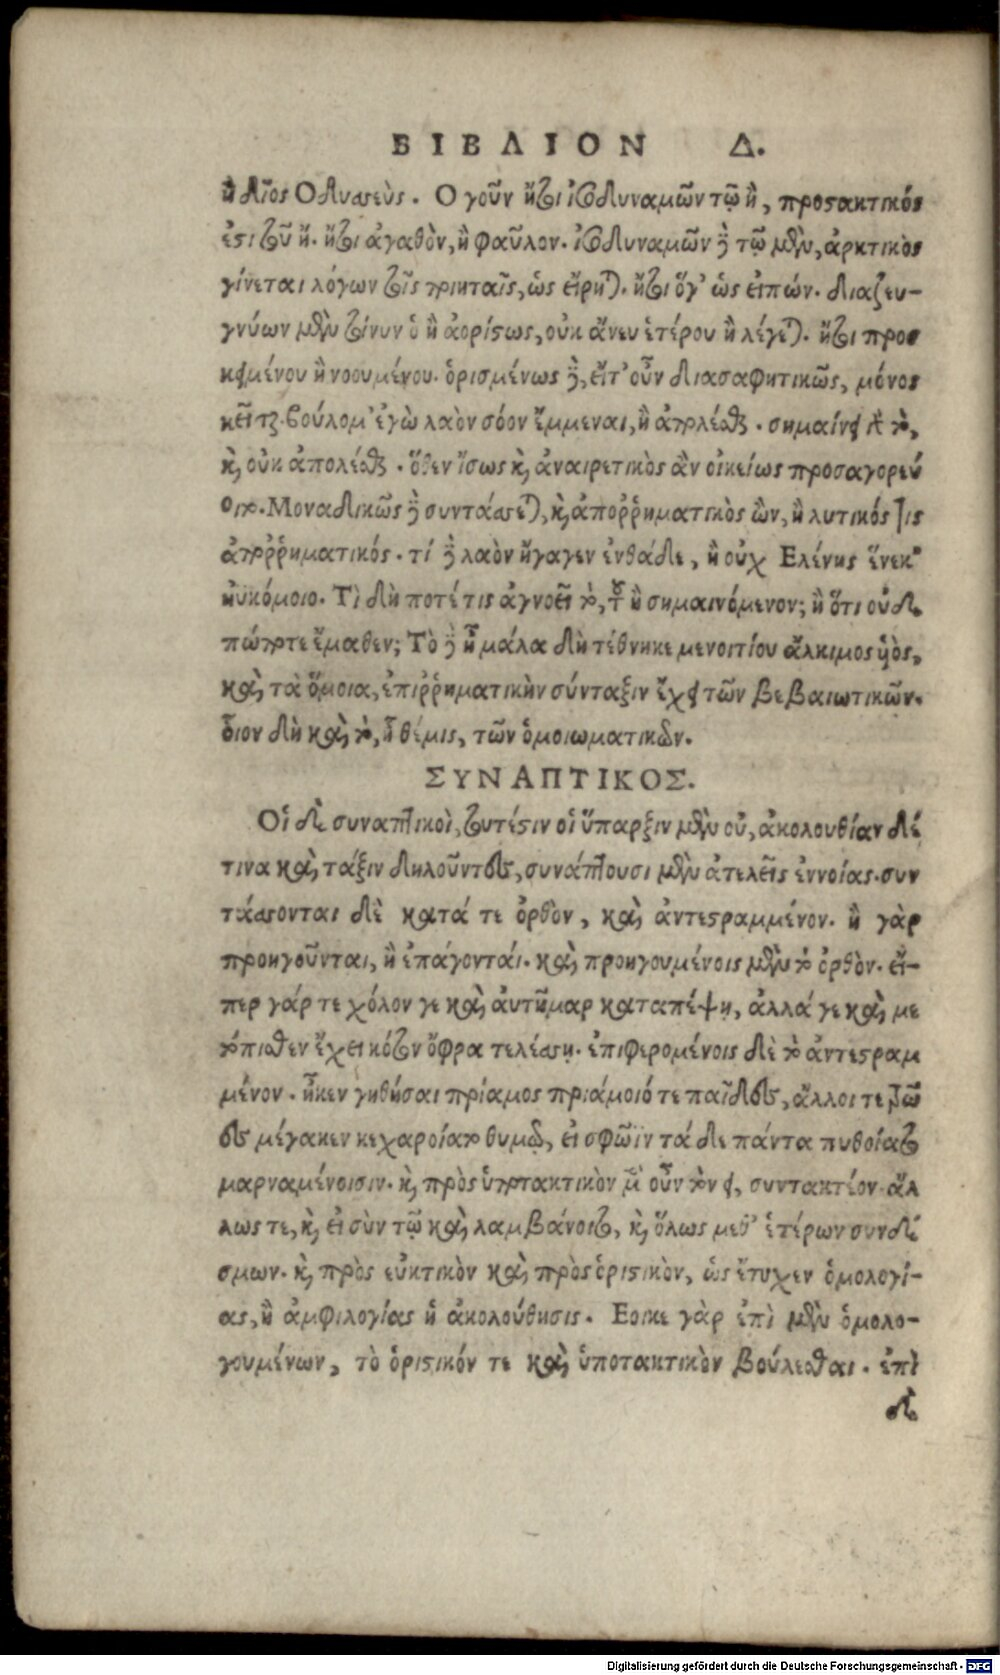 ΒΙΒΛΙΟΝ Δ.
ἢ δῖος Οδυσσεὺς. Ο γοῦν ἤτοι ἰσοδυναμῶν τῷ ἢ, προτακτικός
ἐστι τοῦ ἤ. ἤτοι ἀγαθὸν, ἢ φαῦλον. ἰσοδυναμῶν δὲ τῷ μὲν, ἀρκτικὸς
γίνεται λόγων τοῖς ποιηταῖς, ὡς εἴρηται. ἤτοι ὅγ' ὡς εἰπών. διαζευ-
γνύων μὲν τοίνυν ὁ ἢ ἀορίστως, οὐκ ἄνευ ἑτέρου ἢ λέγεται. ἤτοι προσ
κειμένου ἢ νοουμένου. ὁρισμένως δὲ, εἴτ' οὖν διασαφητικῶς, μόνος
κεῖται. βούλομ' ἐγὼ λαὸν σόον ἔμμεναι, ἢ ἀπολέσθαι. σημαίνει γὰρ τὸ,
καὶ οὐκ ἀπολέσθαι. ὅθεν ἴσως καὶ ἀναιρετικὸς ἂν οἰκείως προσαγορεύ
οιτο. Μοναδικῶς δὲ συντάσσεται, καὶ ἀπορρηματικὸς ὢν, ἢ λυτικός τις
ἀπορρηματικός. τί δὲ λαὸν ἤγαγεν ἐνθάδε, ἢ οὐχ Ελένης ἕνεκ'
ἠϋκόμοιο. Τὶ δὴ ποτέ τις ἀγνοεῖ τὸ, τοῦ ἢ σημαινόμενον; ἢ ὅτι οὐδὲ
πώποτε ἔμαθεν; Τὸ δὲ ἦ μάλα δὴ τέθνηκε μενοιτίου ἄλκιμος υἱὸς,
καὶ τὰ ὅμοια, ἐπιρρηματικὴν σύνταξιν ἔχει τῶν βεβαιωτικῶν.
οἷον δὴ καὶ τὸ, ἧ θέμις, τῶν ὁμοιωματικῶν.
ΣΥΝΑΠΤΙΚΟΣ.
Οἱ δὲ συναπτικοὶ, τουτέστιν οἱ ὕπαρξιν μὲν οὐ, ἀκολουθίαν δέ
τινα καὶ τάξιν δηλοῦντες, συνάπτουσι μὲν ἀτελεῖς ἐννοίας. συν
τάσσονται δὲ κατά τε ὀρθὸν, καὶ ἀντεστραμμένον. ἢ γὰρ
προηγοῦνται, ἢ ἐπάγονται. καὶ προηγουμένοις μὲν τὸ ὀρθὸν. εἴ-
περ γάρ τε χόλον γε καὶ ἀυτῆμαρ καταπέψῃ, ἀλλά γε καὶ με
τόπισθεν ἔχει κότον ὄφρα τελέσσῃ. ἐπιφερομένοις δὲ τὸ ἀντεστραμ
μένον. ἦκεν γηθήσαι πρίαμος πριάμοιό τε παῖδες, ἄλλοι τε τρῶ
ες μέγακεν κεχαροίατο θυμῷ, εἰ σφῶϊν τά δε πάντα πυθοίατο
μαρναμένοισιν. καὶ πρὸς ὑποτακτικὸν μὲν οὖν τὸν εἰ, συντακτέον ἄλ
λως τε, καὶ εἰ σὺν τῷ καὶ λαμβάνοιτο, καὶ ὅλως μεθ' ἑτέρων συνδέ
σμων. καὶ πρὸς εὐκτικὸν καὶ πρὸς ὁριστικὸν, ὡς ἔτυχεν ὁμολογί-
ας, ἢ ἀμφιλογίας ἡ ἀκολούθησις. Εοικε γὰρ ἐπὶ μὲν ὁμολο-
γουμένων, τὸ ὁριστικόν τε καὶ ὑποτακτικὸν βούλεσθαι. ἐπὶ
δὲ
Digitalisierung gefördert durch die Deutsche Forschungsgemeinschaft - DFG